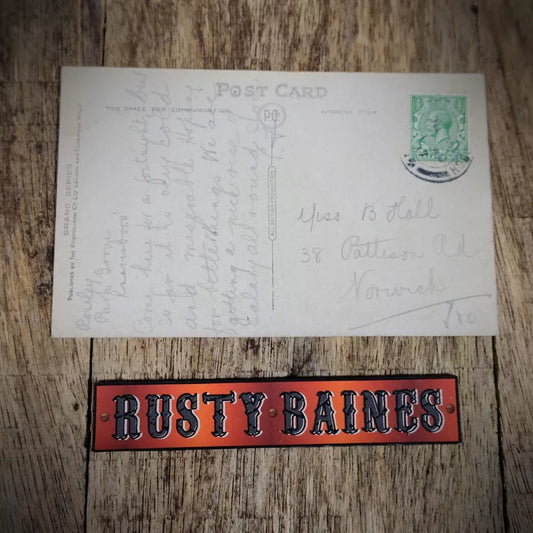 POST CARD
THIS SPACE FOR COMMUNICATION.
ADDRESS ONLY
P.C
ALL BRITISH PRODUCTION
GRAND SERIES
PUBLISHED BY THE PHOTOCHROM CO LTD LONDON AND TUNBRIDGE WELLS
Park Grove
Come here for a fortnight, but
so far it is very cold
and miserable. Hoping
for better things. We are
getting a nice
all round
Miss B Hall
38 Patteson Rd
Norwich
RUSTY BAINES